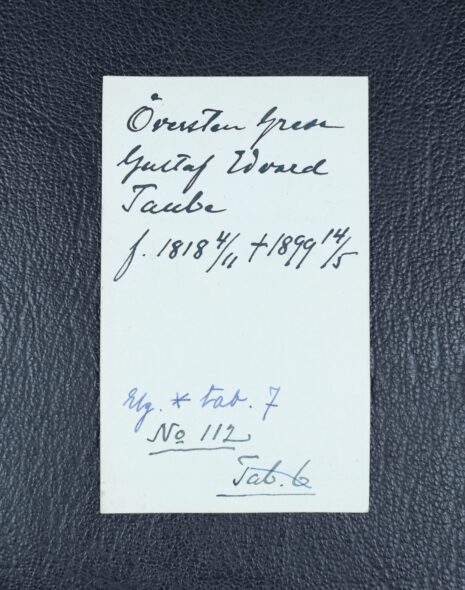 Översten Grefve
Gustaf Edvard
Taube
f. 1818 4/11 † 1899 14/5
Elg. * tab. 7
No 112
Tab. 6